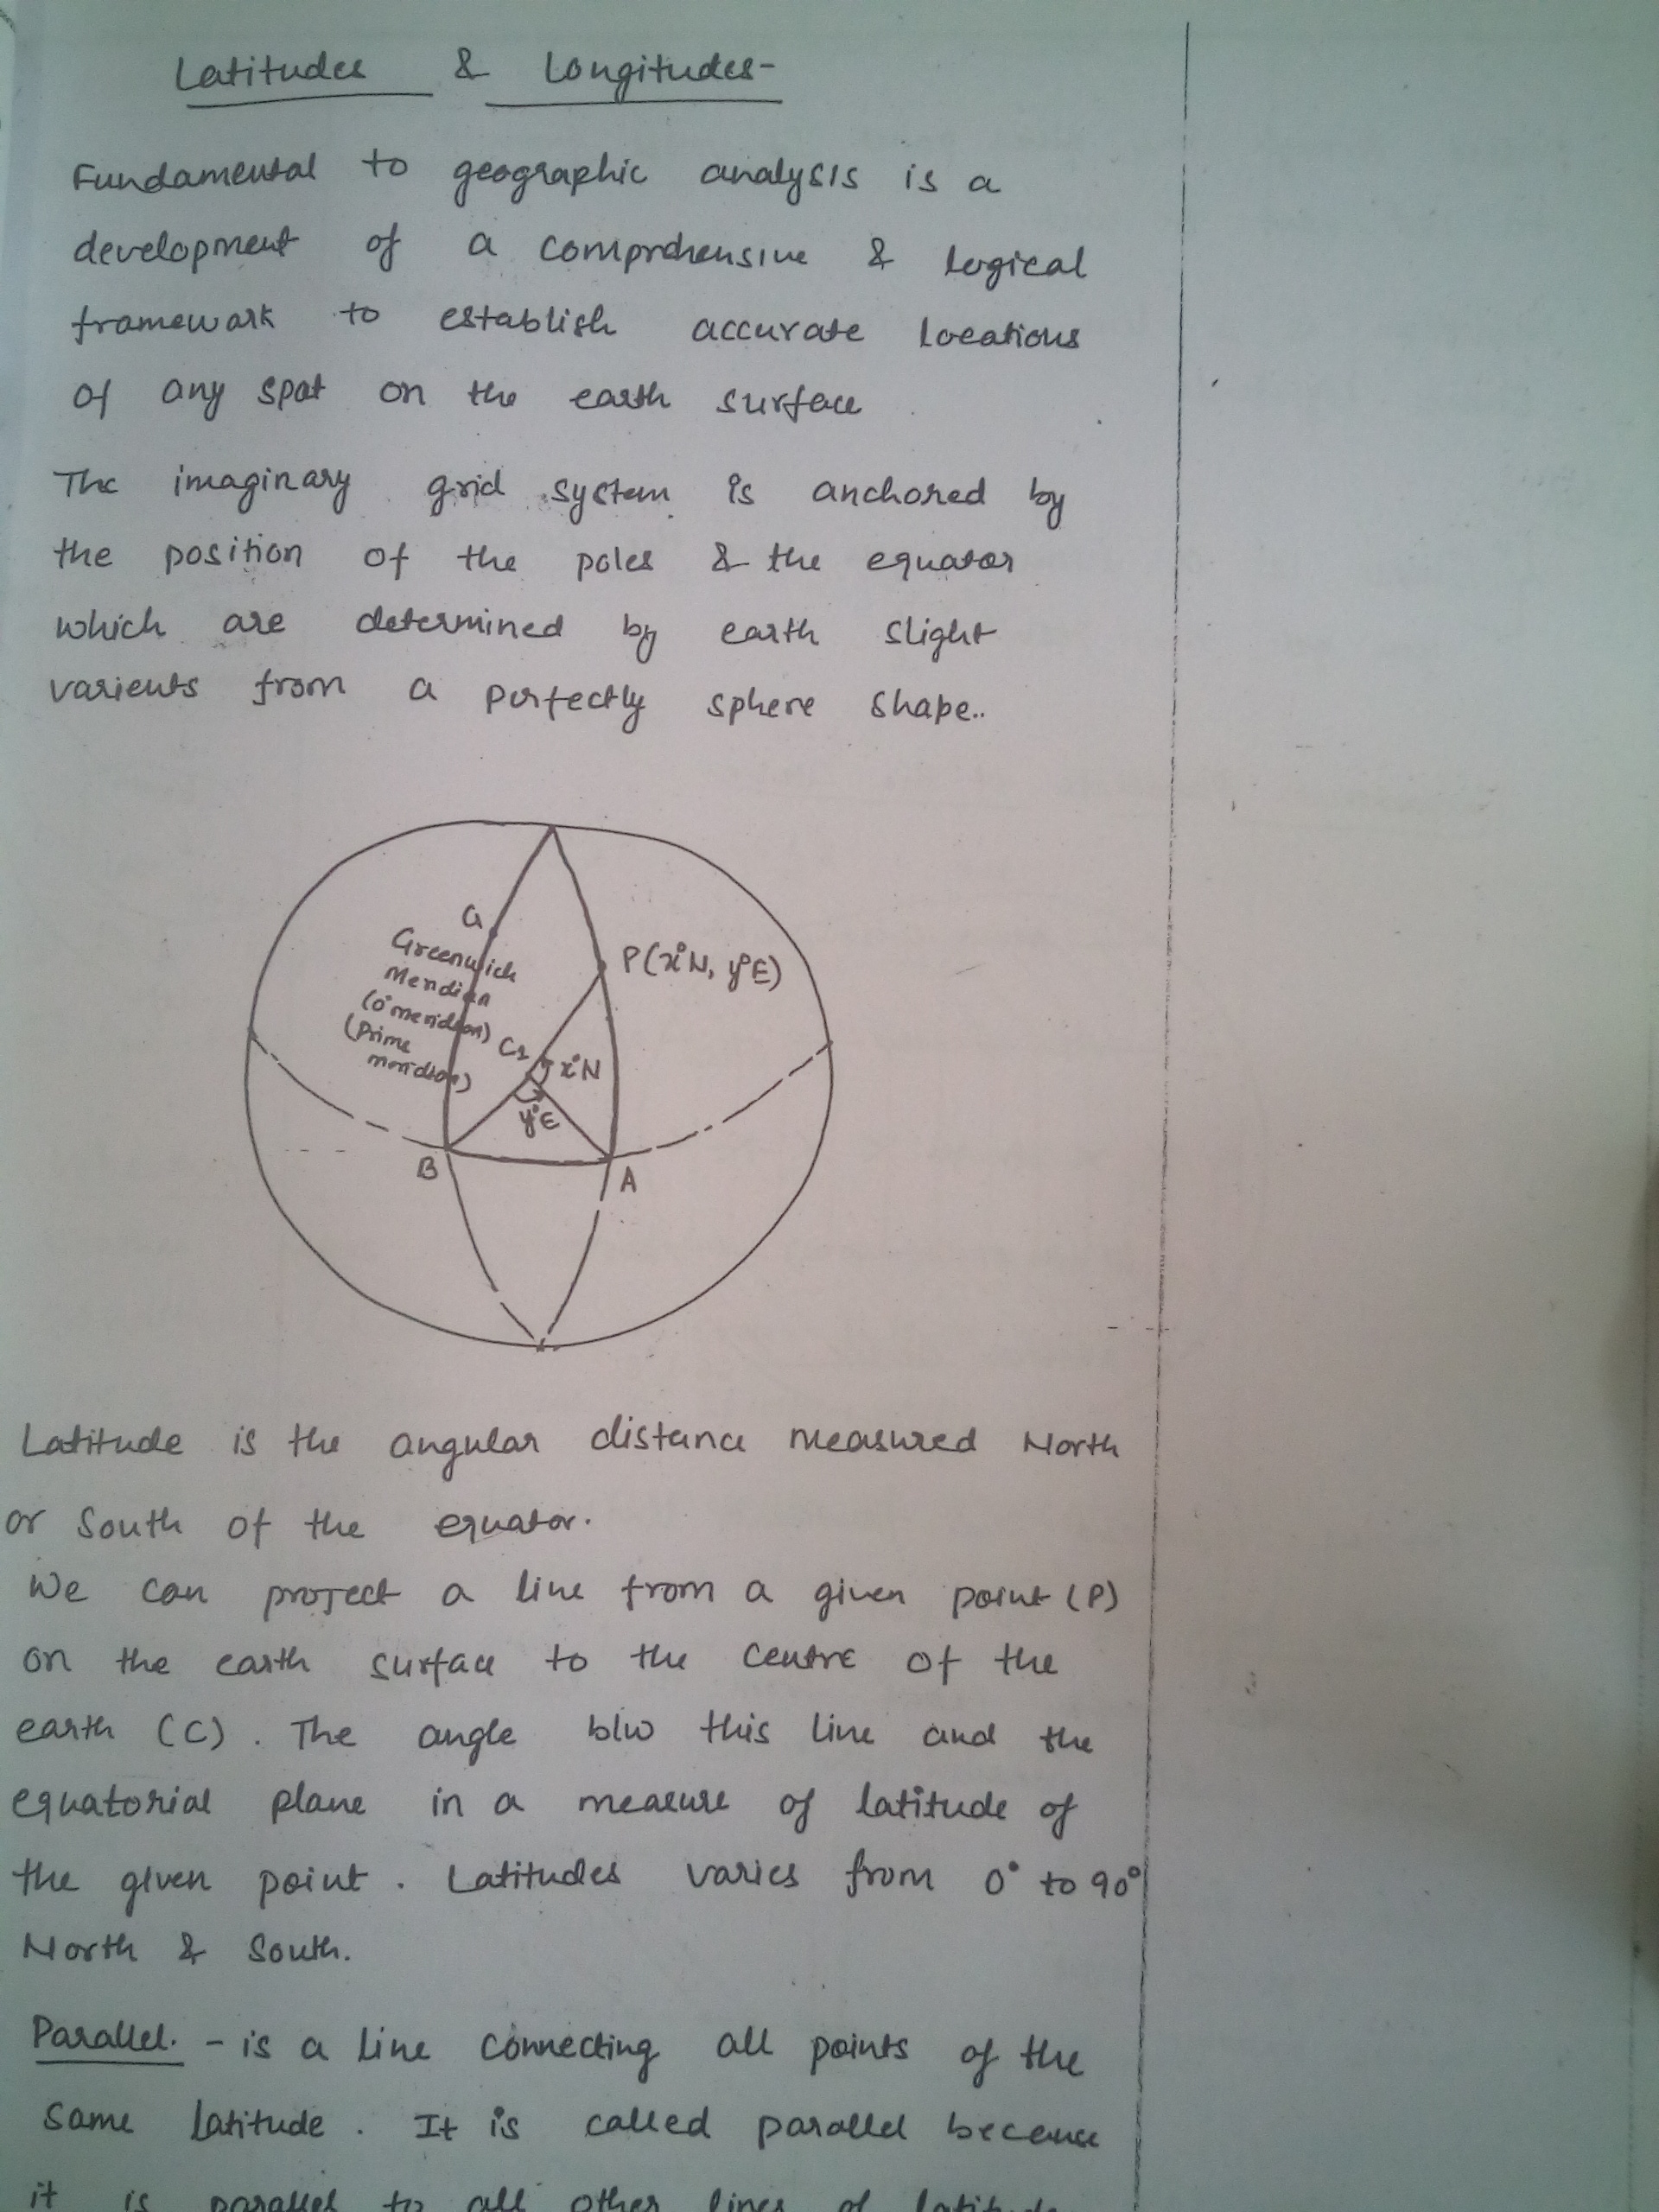 Latitudes & Longitudes-
Fundamental to geographic analysis is a
development of a comprehensive & logical
framework to establish accurate locations
of any spot on the earth surface
The imaginary grid system is anchored by
the position of the poles & the equator
which are determined by earth slight
varients from a perfectly sphere shape..
G
Greenwich
Meridian
(0° meridian)
(Prime
meridian)
P(x°N, y°E)
x°N
y°E
B
A
Latitude is the angular distance measured North
or South of the equator.
We can project a line from a given point (P)
on the earth surface to the centre of the
earth (C). The angle b/w this line and the
equatorial plane in a measure of latitude of
the given point. Latitudes varies from 0° to 90°
North & South.
Parallel. - is a line connecting all points of the
same latitude. It is called parallel because
it is parallel to all other lines of latitude